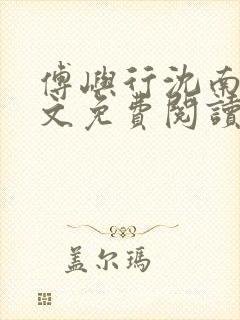 傅嶼行沈南
文免費閱讀
盖尔玛